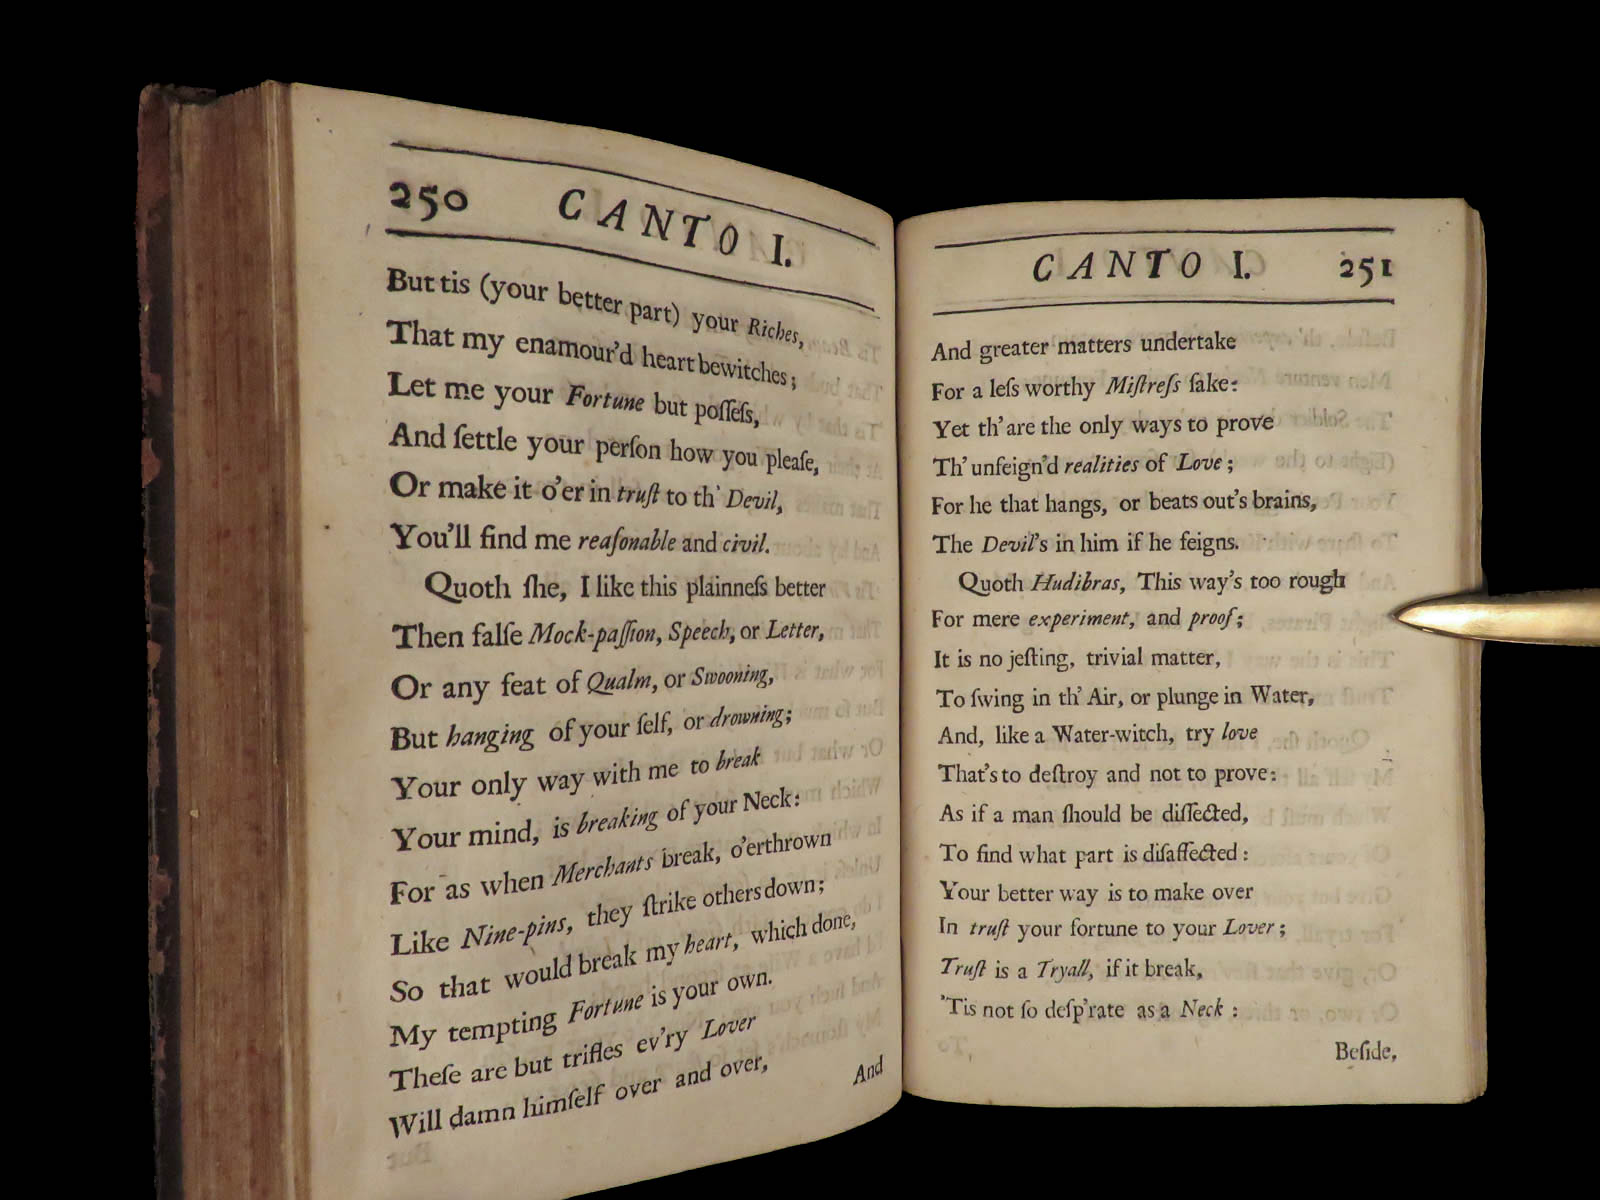 250 CANTO I.
But tis (your better part) your Riches,
That my enamour'd heart bewitches;
Let me your Fortune but poſſeſs,
And ſettle your perſon how you pleaſe,
Or make it o'er in truſt to th' Devil,
You'll find me reaſonable and civil.
Quoth ſhe, I like this plainneſs better
Then falſe Mock-paſſion, Speech, or Letter,
Or any feat of Qualm, or Swooning,
But hanging of your ſelf, or drowning;
Your only way with me to break
Your mind, is breaking of your Neck:
For as when Merchants break, o'erthrown
Like Nine-pins, they ſtrike others down;
So that would break my heart, which done,
My tempting Fortune is your own.
Theſe are but trifles ev'ry Lover
Will damn himſelf over and over,
And
CANTO I. 251
And greater matters undertake
For a leſs worthy Miſtreſs ſake:
Yet th' are the only ways to prove
Th' unfeign'd realities of Love;
For he that hangs, or beats out's brains,
The Devil's in him if he feigns.
Quoth Hudibras, This way's too rough
For mere experiment, and proof;
It is no jeſting, trivial matter,
To ſwing in th' Air, or plunge in Water,
And, like a Water-witch, try love
That's to deſtroy and not to prove:
As if a man ſhould be diſſected,
To find what part is diſaffected:
Your better way is to make over
In truſt your fortune to your Lover;
Truſt is a Tryall, if it break,
'Tis not ſo deſp'rate as a Neck:
Beſide,